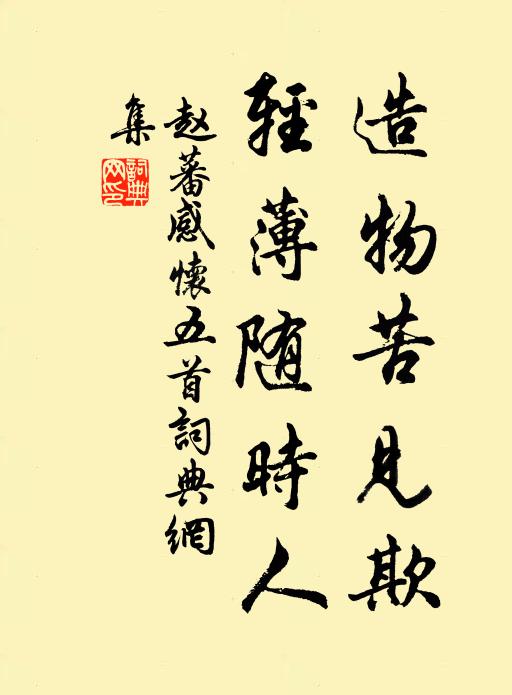 造物苦見欺
輕薄随時人
赵蕃感懷五首詞典網
集
詞典網印